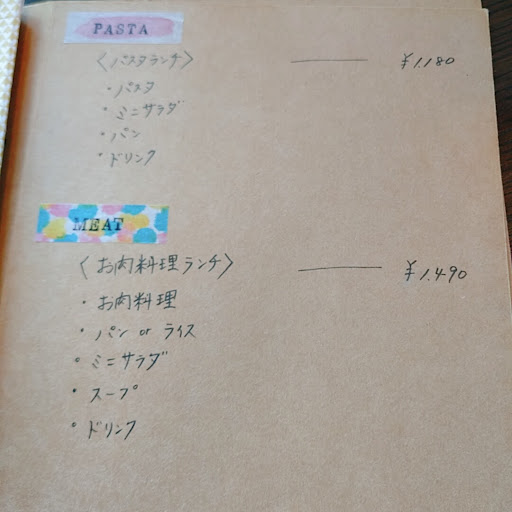 PASTA
〈パスタランチ〉 ¥1.180
・パスタ
・ミニサラダ
・パン
・ドリンク
MEAT
〈お肉料理ランチ〉 ¥1.490
・お肉料理
・パン or ライス
・ミニサラダ
・スープ
・ドリンク